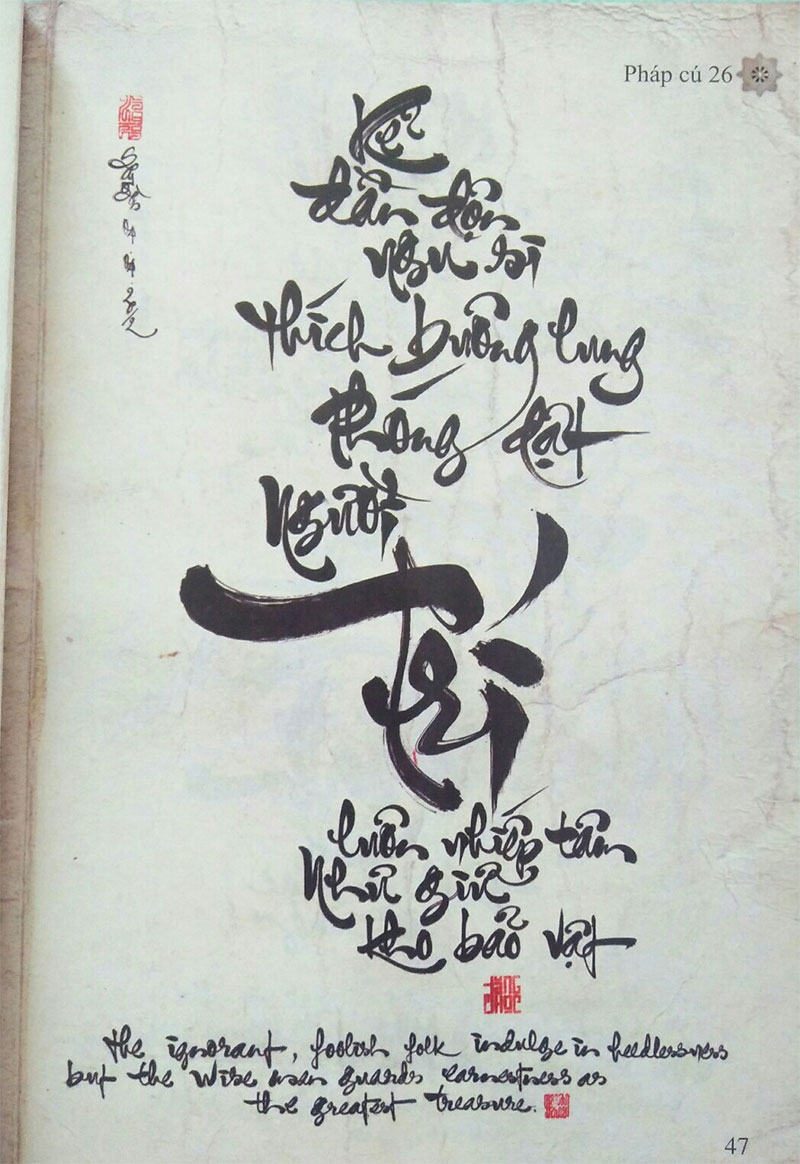 Pháp cú 26
Kẻ
đần độn
ngu si
thích buông lung
phóng dật
Người
Trí
luôn nhiếp tâm
Như giữ
kho bảo vật
the ignorant, foolish folk indulge in heedlessness
but the wise man guards earnestness as
the greatest treasure.
47